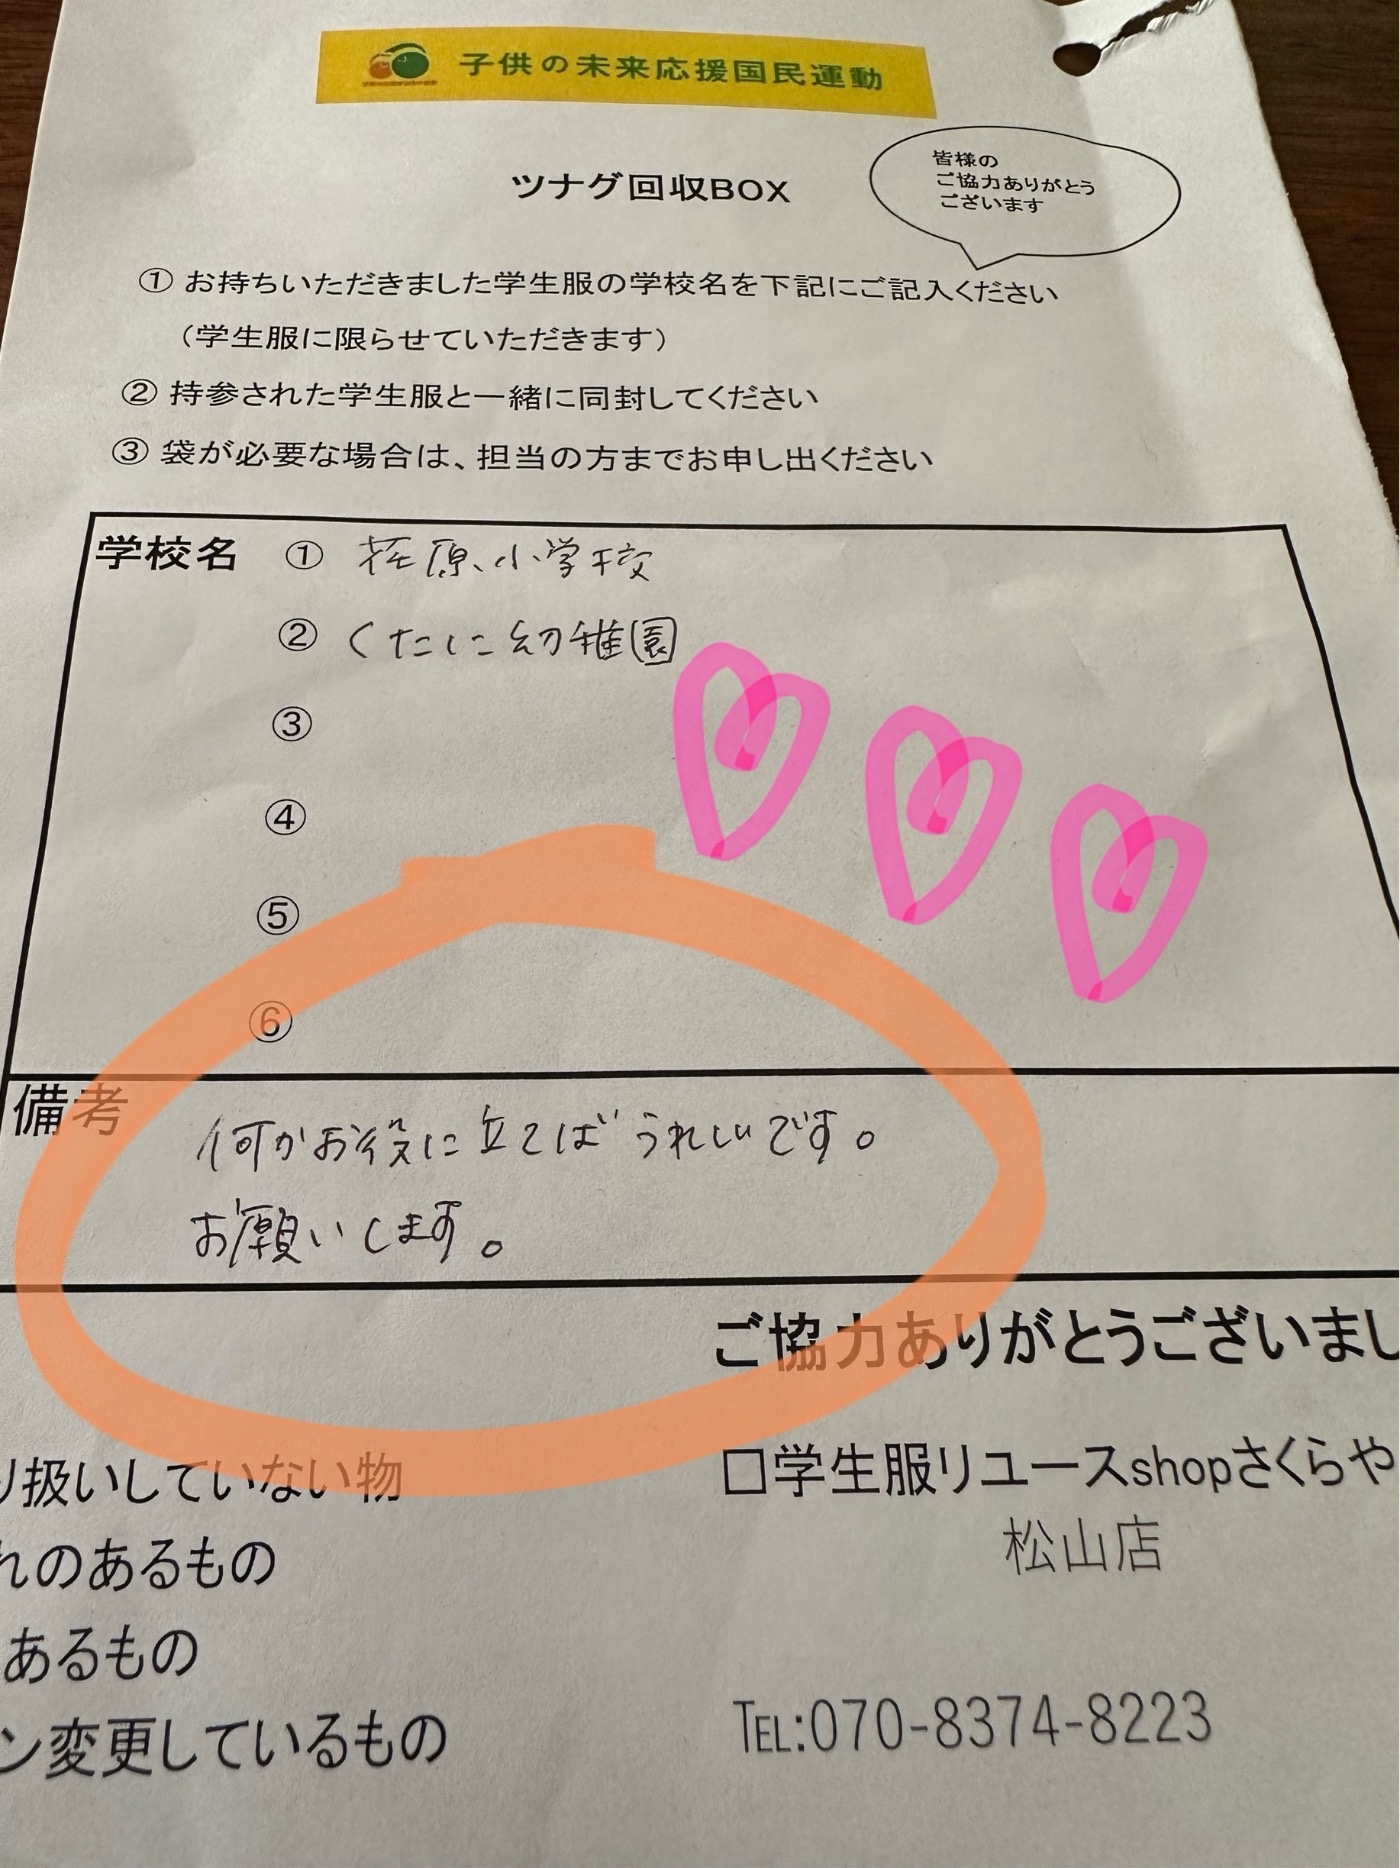 子供の未来応援国民運動
ツナグ回収BOX
皆様の
ご協力ありがとう
ございます
① お持ちいただきました学生服の学校名を下記にご記入ください
（学生服に限らせていただきます）
② 持参された学生服と一緒に同封してください
③ 袋が必要な場合は、担当の方までお申し出ください
学校名 ① 荏原小学校
② くたに幼稚園
③
④
⑤
⑥
備考
何かお役に立てばうれしいです。
お願いします。
ご協力ありがとうございまし
り扱いしていない物
れのあるもの
あるもの
ン変更しているもの
□学生服リユースshopさくらや
松山店
TEL:070-8374-8223